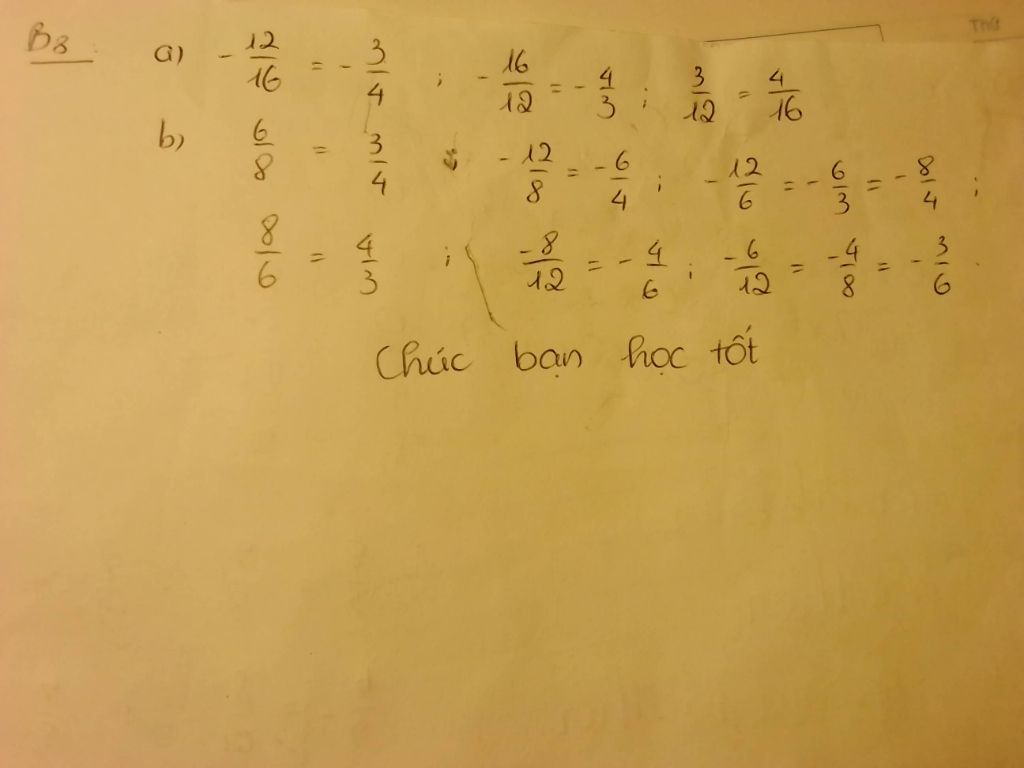 B8: a) -12/16 = -3/4 ; -16/12 = -4/3 ; 3/12 = 4/16
b) 6/8 = 3/4 ; -12/8 = -6/4 ; -12/6 = -6/3 = -8/4 ;
8/6 = 4/3 ; -8/12 = -4/6 ; -6/12 = -4/8 = -3/6 .
Chúc bạn học tốt